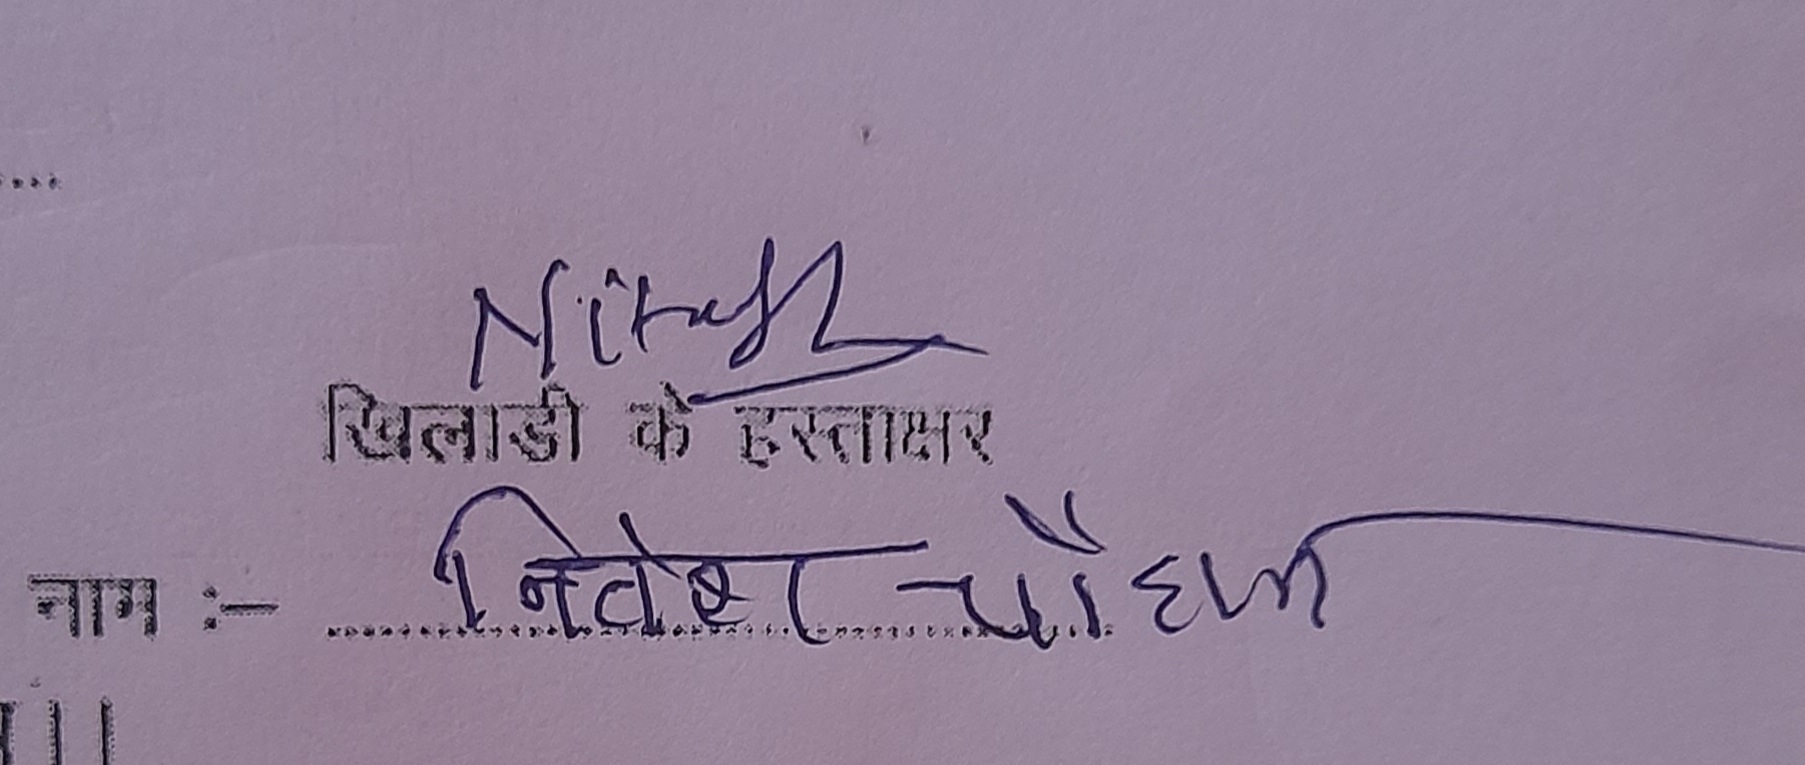 Nitesh
खिलाडी के हस्ताक्षर
नाम :- नितेश चौहान